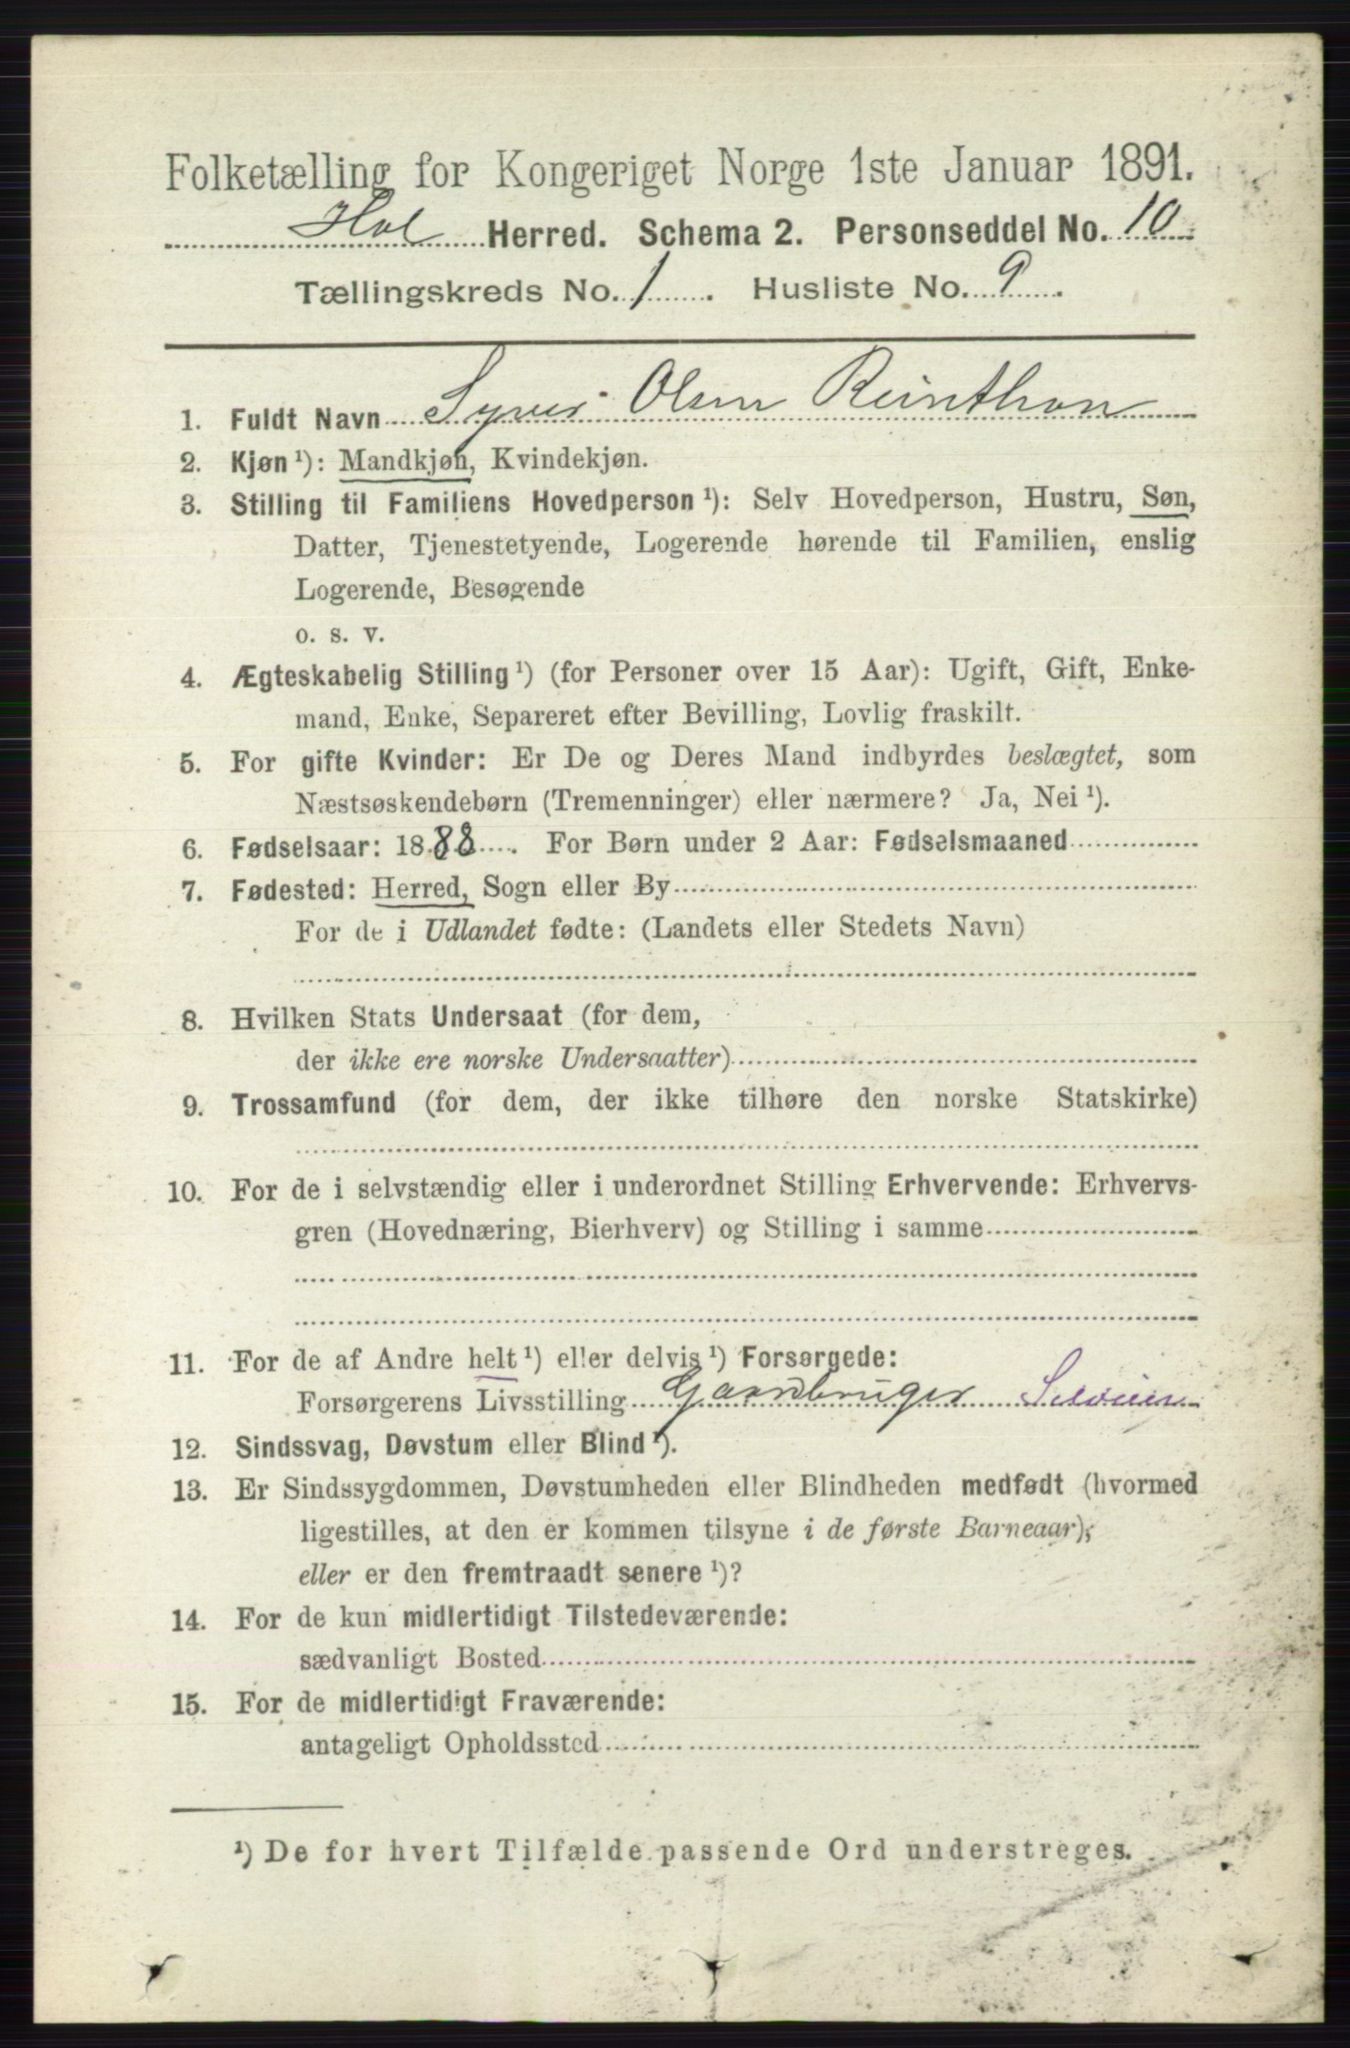 Folketælling for Kongeriget Norge 1ste Januar 1891.
Hol Herred. Schema 2. Personseddel No. 10
Tællingskreds No. 1. Husliste No. 9.
1. Fuldt Navn Syver Olsen
2. Kjøn ¹): Mandkjøn, Kvindekjøn.
3. Stilling til Familiens Hovedperson ¹): Selv Hovedperson, Hustru, Søn,
Datter, Tjenestetyende, Logerende hørende til Familien, enslig
Logerende, Besøgende
o. s. v.
4. Ægteskabelig Stilling ¹) (for Personer over 15 Aar): Ugift, Gift, Enke-
mand, Enke, Separeret efter Bevilling, Lovlig fraskilt.
5. For gifte Kvinder: Er De og Deres Mand indbyrdes beslægtet, som
Næstsøskendebørn (Tremenninger) eller nærmere? Ja, Nei ¹).
6. Fødselsaar: 1888. For Børn under 2 Aar: Fødselsmaaned
7. Fødested: Herred, Sogn eller By
For de i Udlandet fødte: (Landets eller Stedets Navn)
8. Hvilken Stats Undersaat (for dem,
der ikke ere norske Undersaatter)
9. Trossamfund (for dem, der ikke tilhøre den norske Statskirke)
10. For de i selvstændig eller i underordnet Stilling Erhvervende: Erhvervs-
gren (Hovednæring, Bierhverv) og Stilling i samme
11. For de af Andre helt ¹) eller delvis ¹) Forsørgede:
Forsørgerens Livsstilling Gaardbruger Selveier
12. Sindssvag, Døvstum eller Blind ¹).
13. Er Sindssygdommen, Døvstumheden eller Blindheden medfødt (hvormed
ligestilles, at den er kommen tilsyne i de første Barneaar);
eller er den fremtraadt senere ¹)?
14. For de kun midlertidigt Tilstedeværende:
sædvanligt Bosted
15. For de midlertidigt Fraværende:
antageligt Opholdssted
¹) De for hvert Tilfælde passende Ord understreges.